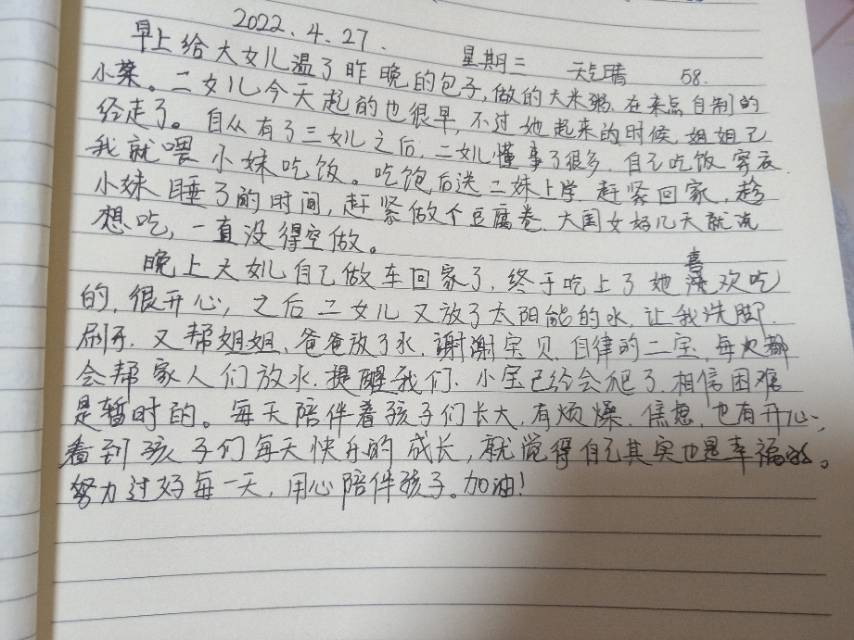 2022.4.27. 星期三 天气晴 58.
早上给大女儿温了昨晚的包子,做的大米粥.在来点自制的
小菜。二女儿今天起的也很早,不过她起来的时候姐姐已
经走了。自从有了三女儿之后,二女儿懂事了很多,自己吃饭穿衣.
我就喂小妹吃饭。吃饱后送二妹上学.赶紧回家,趁
小妹睡了的时间,赶紧做个豆腐卷.大闺女好几天就说
想吃,一直没得空做。
晚上大女儿自己做车回家了,终于吃上了她喜欢吃
的,很开心,之后二女儿又放了太阳能的水,让我洗脚.
刷牙.又帮姐姐、爸爸放了水.谢谢宝贝.自律的二宝,每次都
会帮家人们放水.提醒我们.小宝已经会爬了.相信困难
是暂时的。每天陪伴着孩子们长大,有烦燥.焦虑,也有开心,
看到孩子们每天快乐的成长,就觉得自己其实也是幸福的。
努力过好每一天,用心陪伴孩子。加油!